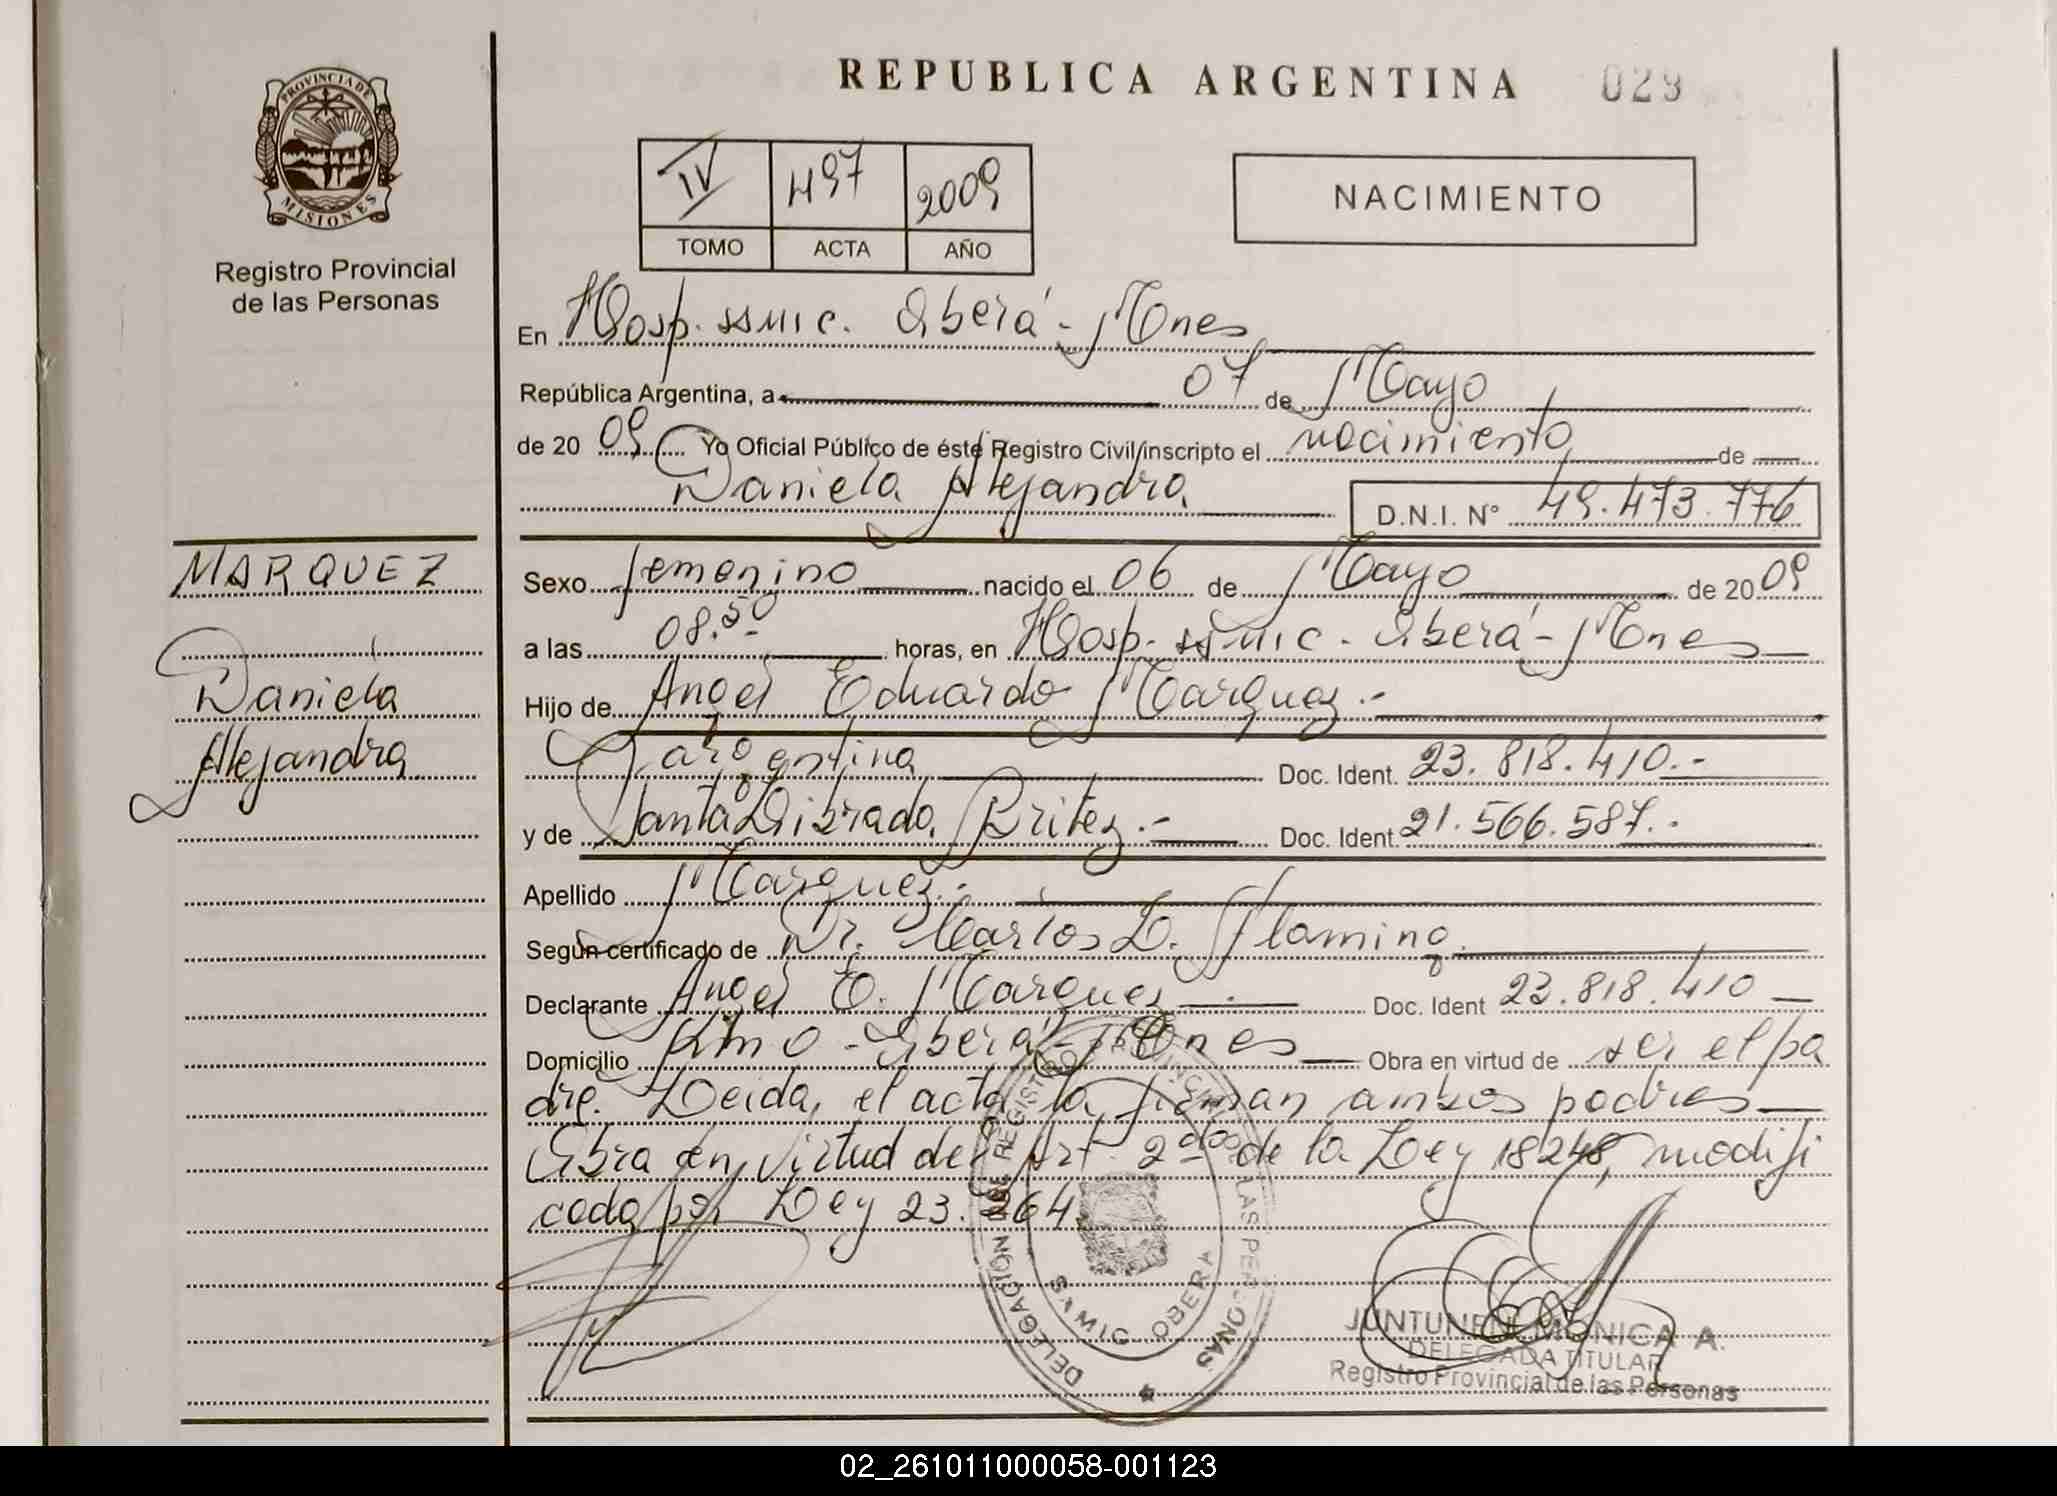 REPUBLICA ARGENTINA 029
PROVINCIA DE
MISIONES
Registro Provincial
de las Personas
IV 497 2009
TOMO ACTA AÑO
NACIMIENTO
En Hosp. SSMIC. Oberá - Mnes
República Argentina, a 07 de Mayo
de 20 09 Yo Oficial Público de éste Registro Civil inscripto el nacimiento de
Daniela Alejandra D.N.I. Nº 49.473.776
MARQUEZ
Daniela
Alejandra
Sexo femenino nacido el 06 de Mayo de 20 09
a las 08.50 horas, en Hosp. SSMIC - Oberá - Mnes
Hijo de Angel Eduardo Marquez.-
argentina Doc. Ident. 23.818.410.-
y de Santa Librada Britez.- Doc. Ident. 21.566.587.-
Apellido Marquez.-
Según certificado de Dr. Carlos D. Flaming
Declarante Angel E. Marquez Doc. Ident 23.818.410
Domicilio Km 0 - Oberá - Mnes Obra en virtud de ser el pa
dre. Leida, el acta la firman ambos padres
Obra en virtud del Art. 2do de la Ley 18248, modifi
cada por Ley 23.264
DELEGACION DE REGISTRO PROVINCIAL DE LAS PERSONAS
SAMIC OBERA
JUNTUNEN MONICA A.
DELEGADA TITULAR
Registro Provincial de las Personas
02_261011000058-001123